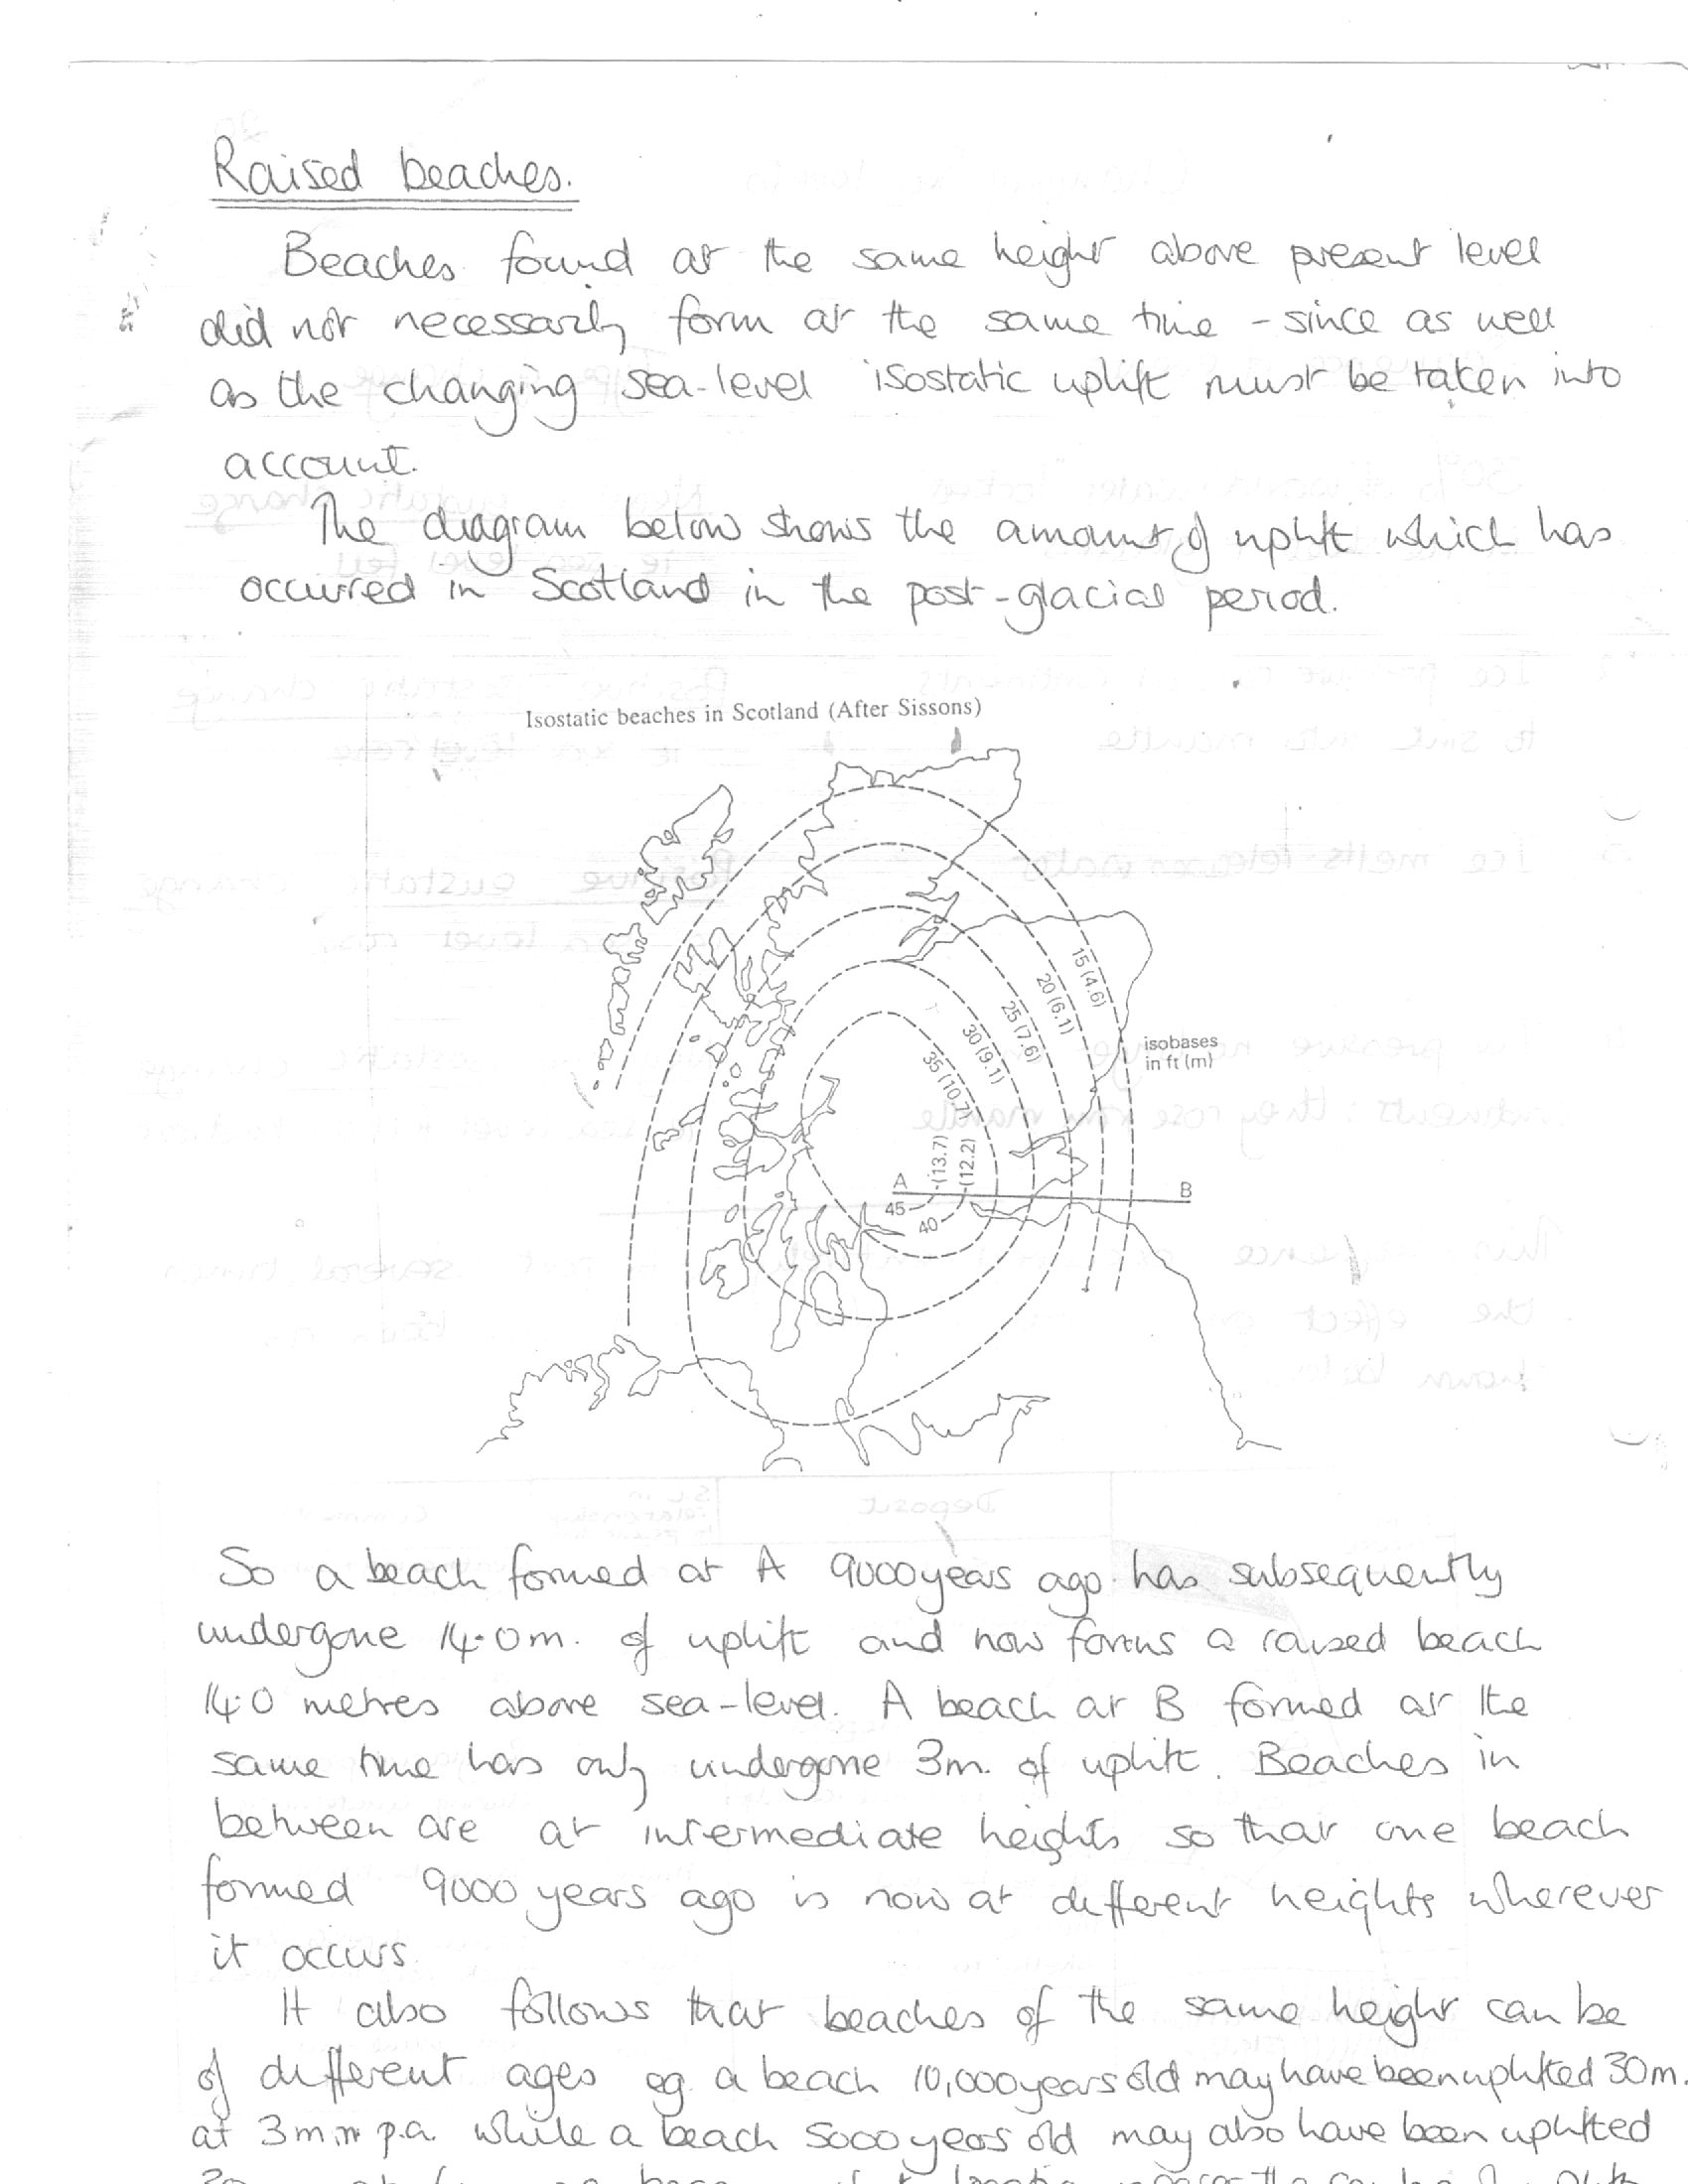 Raised beaches.
Beaches found at the same height above present level
did not necessarily form at the same time - since as well
as the changing sea-level isostatic uplift must be taken into
account.
The diagram below shows the amount of uplift which has
occurred in Scotland in the post-glacial period.
Isostatic beaches in Scotland (After Sissons)
15 (4.6)
20 (6.1)
25 (7.6)
30 (9.1)
35 (10.7)
isobases
in ft (m)
(13.7)
(12.2)
A
B
45
40
So a beach formed at A 9000 years ago has subsequently
undergone 14.0m. of uplift and now forms a raised beach
14.0 metres above sea-level. A beach at B formed at the
same time has only undergone 3m. of uplift. Beaches in
between are at intermediate heights so that one beach
formed 9000 years ago is now at different heights wherever
it occurs
It also follows that beaches of the same height can be
of different ages eg. a beach 10,000 years old may have been uplifted 30m.
at 3mm p.a. while a beach 5000 years old may also have been uplifted